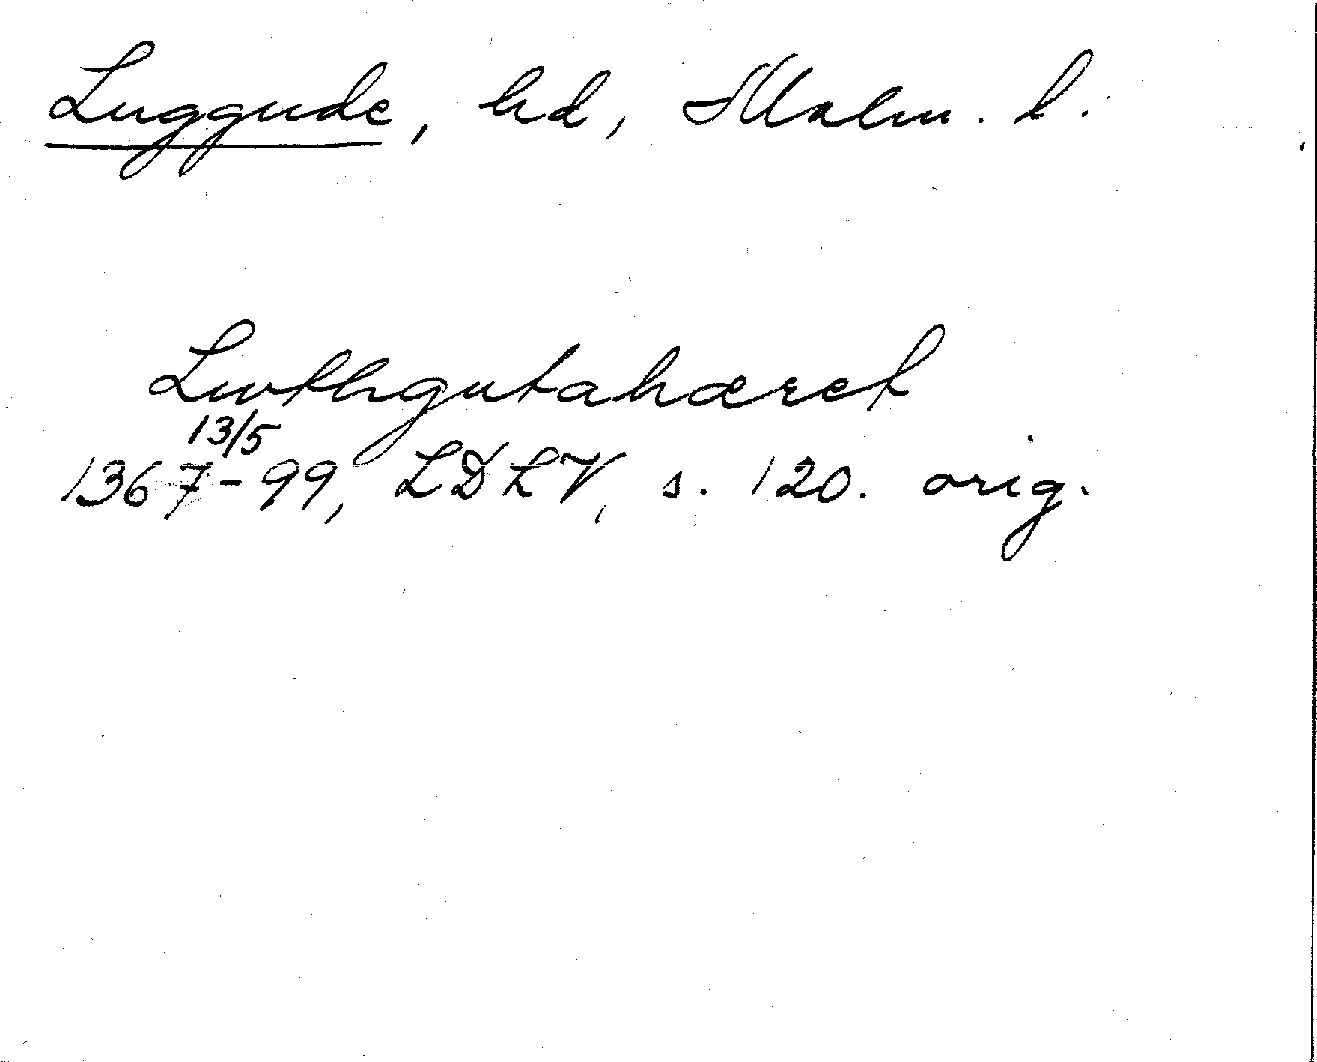 Luggude, hd, Malm. l.
Lwthgutahæret
13/5
1367-99, LDLV, s. 120. orig.